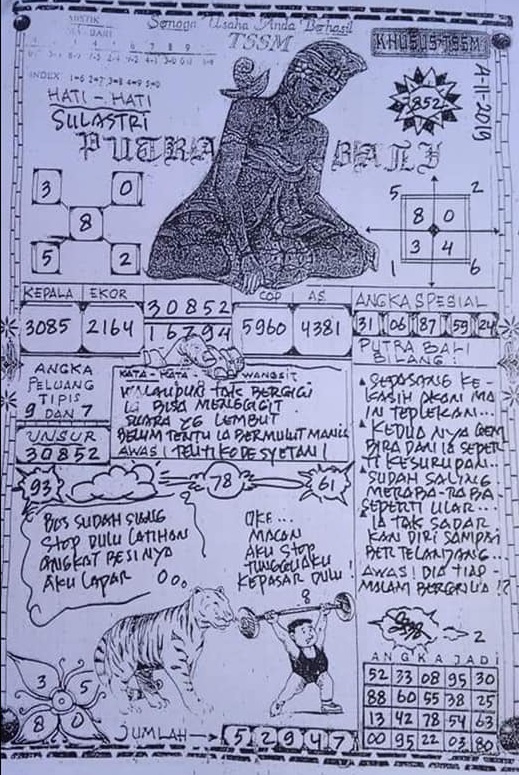 Semoga Usaha Anda Berhasil
TSSM
KHUSUS-TSSM
MISTIK
6 7 8 9
INDEX 1=6 2=7 3=8 4=9 5=0
852
4-11-2019
HATI - HATI
SULASTRI
PUTRA BALI
3 0
8
5 2
5 2
8 0
3 4
1 6
KEPALA EKOR
3085 2164
30852
16794
COP AS
5960 4381
ANGKA SPESIAL
31 06 87 59 24
ANGKA
PELUANG
TIPIS
9 DAN 7
UNSUR
30852
KATA - KATA WANGSIT
WALAUPUN TAK BERGIGI
IA BISA MENGGIGIT
SUARA YG LEMBUT
BELUM TENTU IA BERMULUT MANIS
AWAS! TELITI KODE SYETAN!
PUTRA BALI
BILANG:
SEPASANG KE-
KASIH AKAN MA
IN
KEDUA NYA GEM
BIRA DAN IA SEPER
TI KESURUPAN..
SUDAH SALING
MERABA-RABA
SEPERTI ULAR...
IA TAK SADAR
KAN DIRI SAMPAI
BERTELANJANG...
AWAS! DIA TIAP-
MALAM BERGRILIA!?
93 78 61
BOS SUDAH SIANG
STOP DULU LATIHAN
ANGKAT BESINYA
AKU LAPAR
OKE...
MACAN
AKU STOP
TUNGGU AKU
KEPASAR DULU!
8
2
3 5
8 0
JUMLAH
5 2 9 4 7
ANGKA JADI
52 33 08 95 30
88 60 55 38 25
13 42 78 54 63
00 95 22 03 80